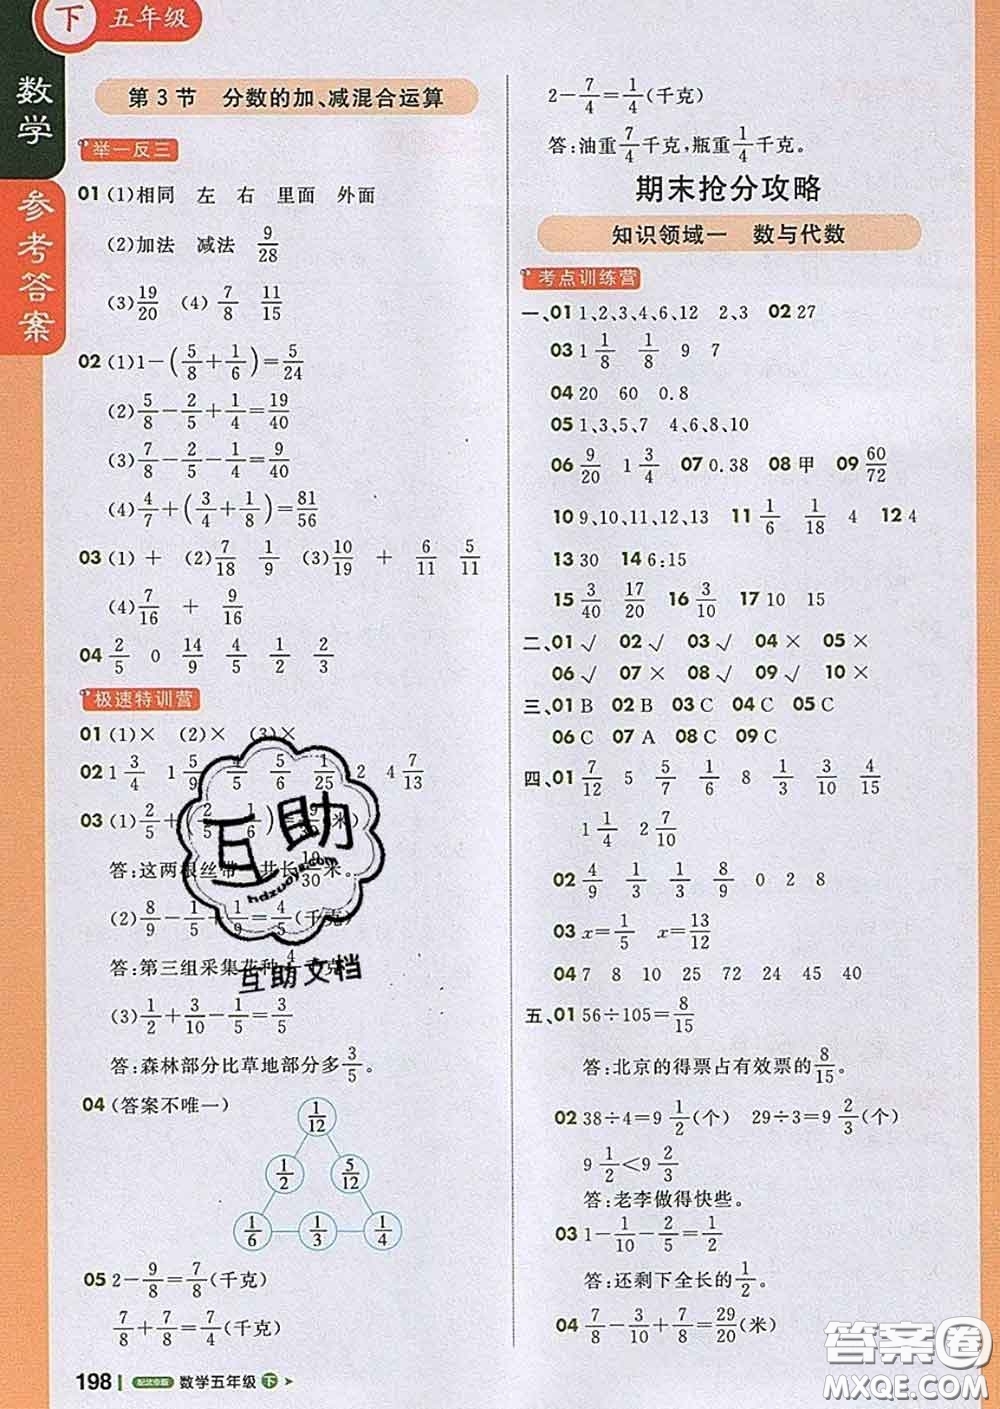 下 五年级
数学
参考答案
第3节 分数的加、减混合运算
举一反三
01 (1)相同 左 右 里面 外面
(2)加法 减法 9/28
(3)19/20 (4) 7/8 11/15
02 (1)1-(5/8+1/6)=5/24
(2)5/8-2/5+1/4=19/40
(3)7/8-2/5-1/4=9/40
(4)4/7+(3/4+1/8)=81/56
03 (1) + (2)7/18 1/9 (3)10/19 + 6/11 5/11
(4)7/16 + 9/16
04 2/5 0 14/9 4/5 1/2 2/3
极速特训营
01 (1)× (2)× (3)×
02 1 3/4 1 5/9 4/5 5/6 1/25 2 4 7/13
03 (1)2/5+(2/5-1/6)=19/30(米)
答:这两根丝带一共长19/30米。
(2)8/9-1/5+1/9=4/5(千克)
答:第三组采集花种4/5千克
(3)1/2+3/10-1/5=3/5
答:森林部分比草地部分多3/5。
04 (答案不唯一)
1/12
1/2 5/12
1/6 1/3 1/4
05 2-9/8=7/8(千克)
7/8+7/8=7/4(千克)
198 配北京版 数学五年级 下
2-7/4=1/4(千克)
答:油重7/4千克,瓶重1/4千克。
期末抢分攻略
知识领域一 数与代数
考点训练营
一、01 1、2、3、4、6、12 2、3 02 27
03 1 1/8 1/8 9 7
04 20 60 0.8
05 1、3、5、7 4、6、8、10
06 9/20 1 3/4 07 0.38 08 甲 09 60/72
10 9、10、11、12、13 11 1/6 1/18 4 12 4
13 30 14 6:15
15 3/40 17/20 16 3/10 17 10 15
二、01 √ 02 √ 03 √ 04 × 05 ×
06 √ 07 × 08 √ 09 √ 10 ×
三、01 B 02 B 03 C 04 C 05 C
06 C 07 A 08 C 09 C
四、01 7/12 5 5/7 1/6 8 1/3 3/4
1 1/4 2 7/10
02 4/9 1/3 1/3 8/9 0 2 8
03 x=1/5 x=13/12
04 7 8 10 25 72 24 45 40
五、01 56÷105=8/15
答:北京的得票占有效票的8/15。
02 38÷4=9 1/2(个) 29÷3=9 2/3(个)
9 1/2<9 2/3
答:老李做得快些。
03 1-1/10-2/5=1/2
答:还剩下全长的1/2。
04 7/8-3/10+7/8=29/20(米)
互助
hdzuoye.com
互助文档
答案圈
MXQE.COM